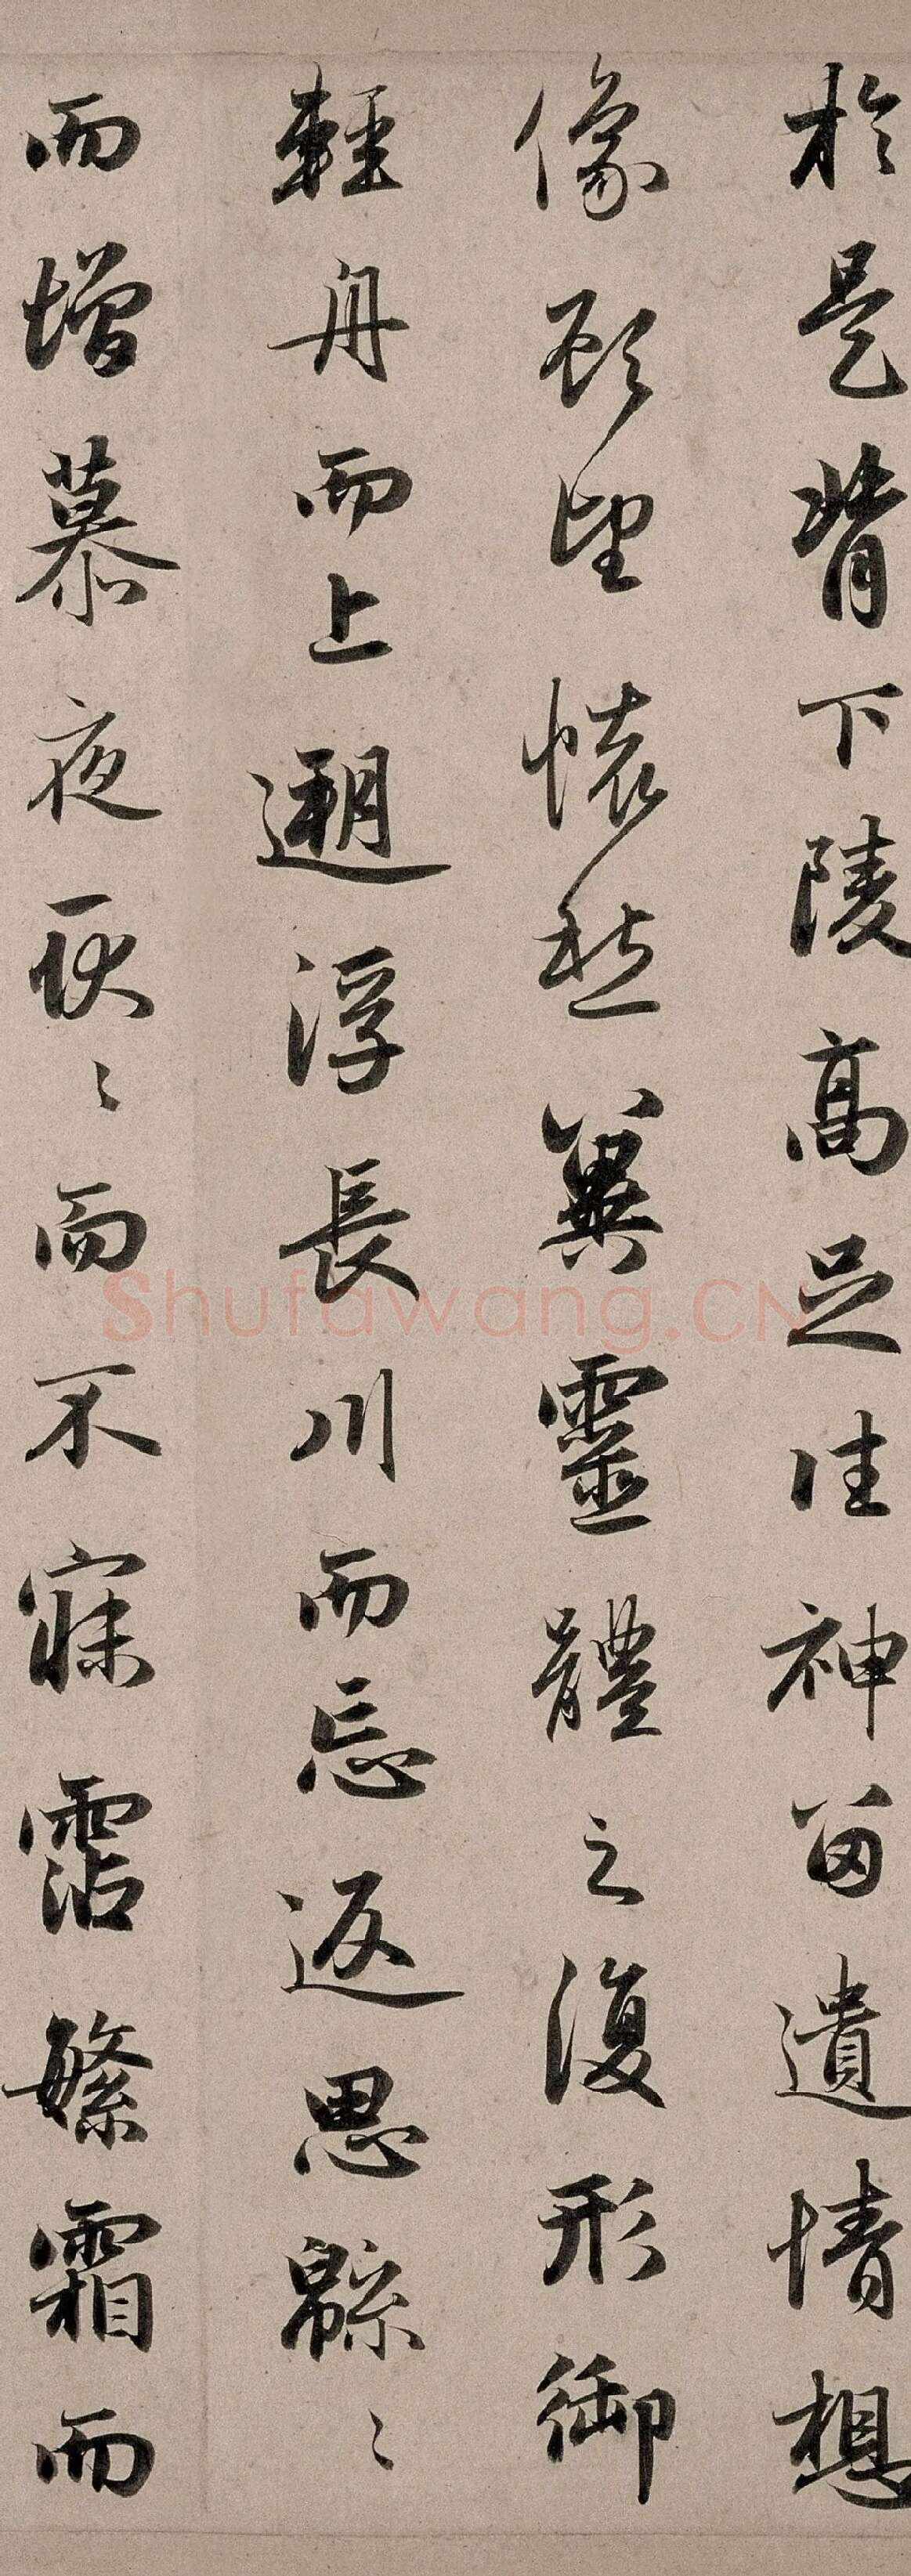 於是背下陵高足往神留遺情想
像顧望懷愁冀靈體之復形御
輕舟而上遡浮長川而忘返思緜〻
而增慕夜耿〻而不寐霑繁霜而
Shufawang.CN